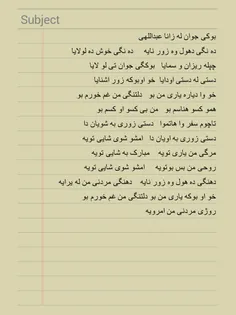 Subject
بوکی جوان له زانا عبداللهی
ده نگی دهول وه زور نایه    ده نگی خوش ده لولایا
چپله ریزان و سمایا    بوکگی جوان تی لو لایا
دستی له دستی اودایا    خو اوبوکه زور اشنایا
خو وا دیاره یاری من بو    دلتنگی من غم خورم بو
همو کسو هناسم بو    من بی کسو او کسم بو
تاچوم سفر وا هاتموا    دستی زوری به شویان دا
دستی زوری به اویان دا    امشو شوی شایی تویه
مرگی من یاری تویه    مبارک به شایی تویه
روحی من بس بوتویه    امشو شوی شایی تویه
دهنگی ده هول وه زور نایه    دهنگی مردنی من له یرایه
خو او بوکه یاری من بو دلتنگی من غم خورم بو
روژی مردنی من امرویه